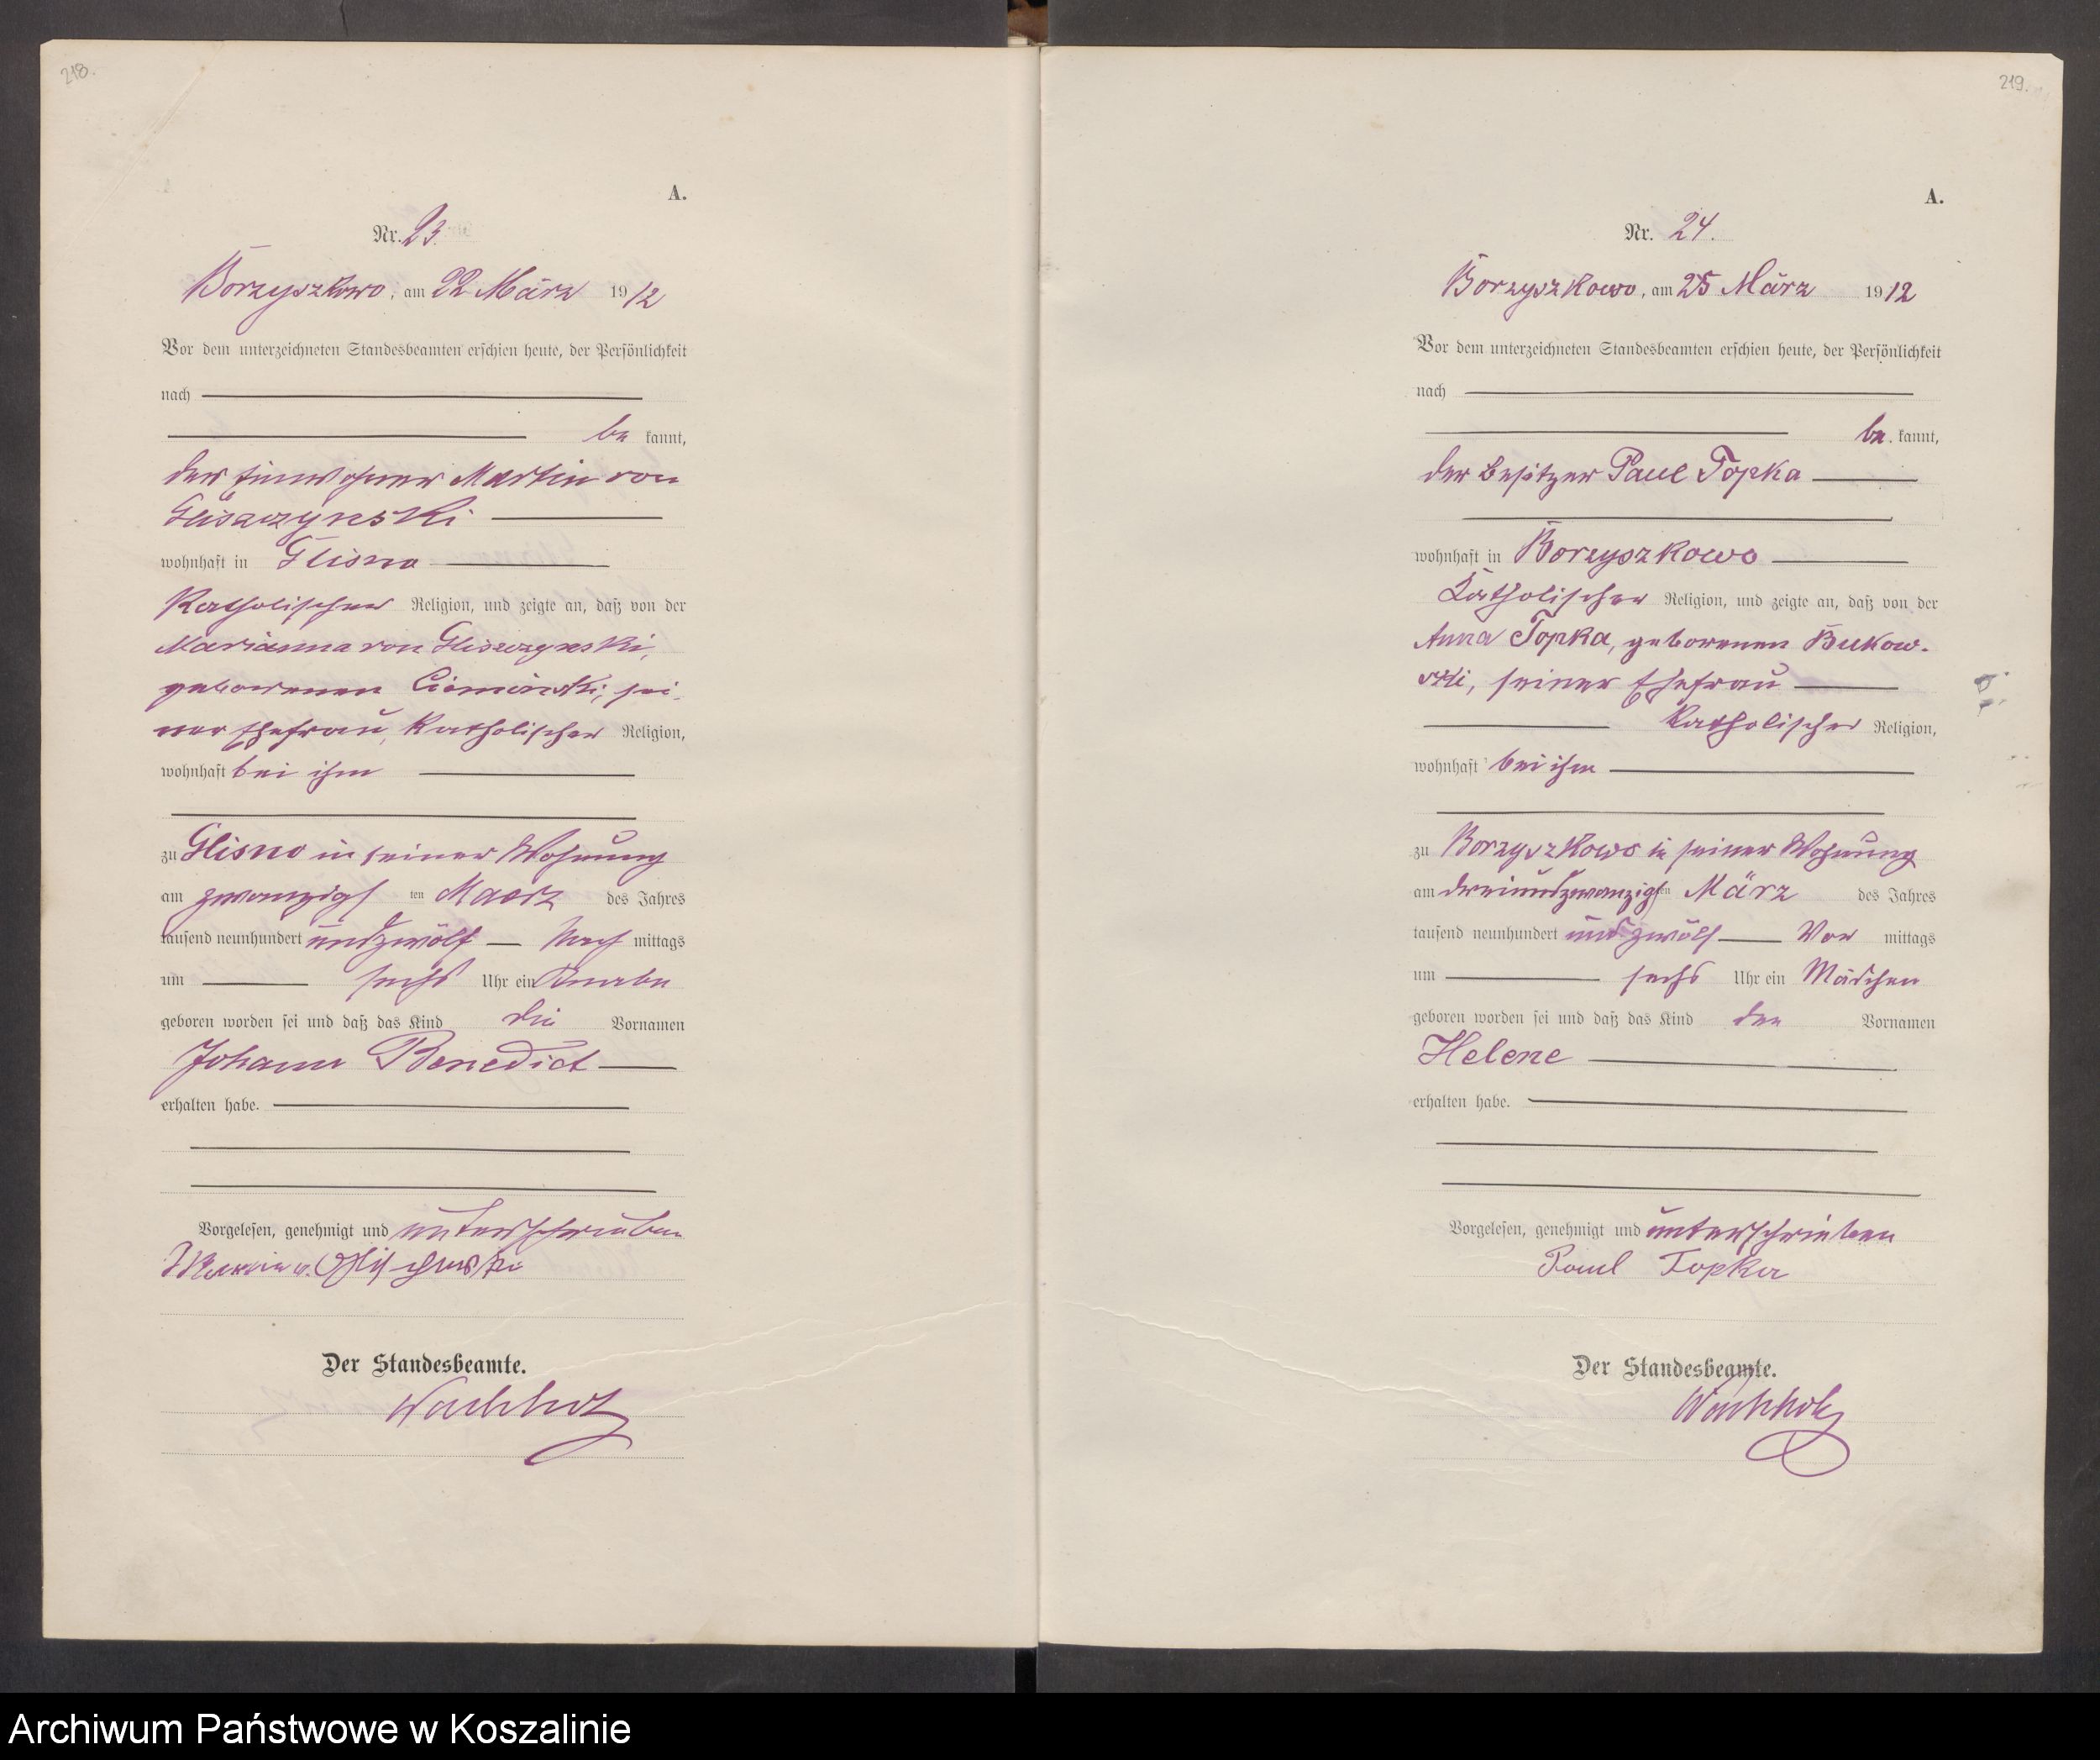 218.
A.
Nr. 23.
Borzyszkowo, am 22 März 1912
Vor dem unterzeichneten Standesbeamten erschien heute, der Persönlichkeit
nach
be kannt,
der Einwohner Martin von
Gliszczynski
wohnhaft in Glisno
Katholischer Religion, und zeigte an, daß von der
Marianna von Gliszczynski,
geborenen Ciemiński, sei-
ner Ehefrau, Katholischer Religion,
wohnhaft bei ihm
zu Glisno in seiner Wohnung
am zwanzigsten Maerz des Jahres
tausend neunhundert und zwölf Nach mittags
um sechs Uhr ein Knabe
geboren worden sei und daß das Kind die Vornamen
Johann Benedict
erhalten habe.
Vorgelesen, genehmigt und unterschrieben
Der Standesbeamte.
Wachholz
219.
A.
Nr. 24.
Borzyszkowo, am 25 März 1912
Vor dem unterzeichneten Standesbeamten erschien heute, der Persönlichkeit
nach
be kannt,
der Besitzer Paul Topka
wohnhaft in Borzyszkowo
Katholischer Religion, und zeigte an, daß von der
Anna Topka, geborenen Bukow-
ski, seiner Ehefrau
Katholischer Religion,
wohnhaft bei ihm
zu Borzyszkowo in seiner Wohnung
am dreiundzwanzigsten März des Jahres
tausend neunhundert und zwölf Vor mittags
um sechs Uhr ein Mädchen
geboren worden sei und daß das Kind den Vornamen
Helene
erhalten habe.
Vorgelesen, genehmigt und unterschrieben
Paul Topka
Der Standesbeamte.
Wachholz
Archiwum Państwowe w Koszalinie